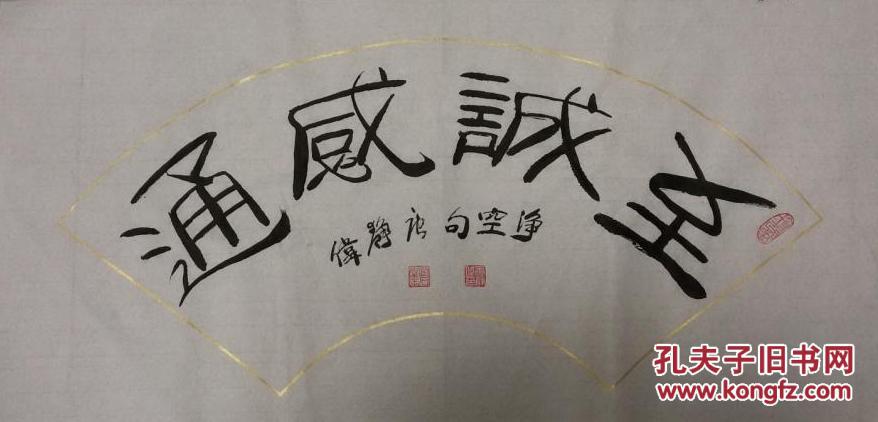 至誠感通
净空句 唐静偉
孔夫子旧书网
www.kongfz.com